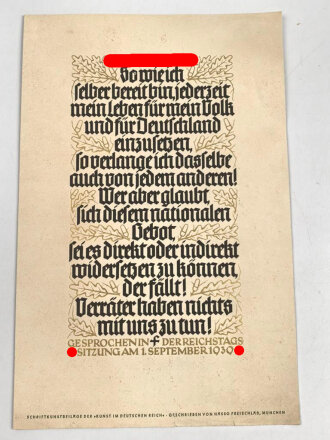 So wie ich
selber bereit bin, jederzeit
mein Leben für mein Volk
und für Deutschland
einzusetzen,
so verlange ich dasselbe
auch von jedem anderen!
Wer aber glaubt,
sich diesem nationalen
Gebot,
sei es direkt oder indirekt
widersetzen zu können,
der fällt!
Verräter haben nichts
mit uns zu tun!
GESPROCHEN IN DER REICHSTAGS
SITZUNG AM 1. SEPTEMBER 1939
SCHRIFTKUNSTBEILAGE DER »KUNST IM DEUTSCHEN REICH« · GESCHRIEBEN VON GASSO FREISCHLAD, MÜNCHEN